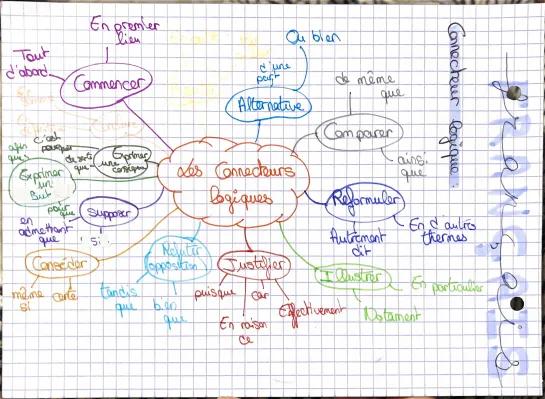 Français
Connecteur logique :
Les Connecteurs
logiques
Commencer
En premier
lieu
Tout
d'abord
Alternative
Ou bien
d'une
part
Comparer
de même
que
ainsi
que
Reformuler
Autrement
dit
En d'autro
thermes
Illustrer
En particulier
Notament
Justifier
puisque
car
En raison
ce
Effectivement
Réfuter
opposition
tandis
que
bien
que
Concéder
même
si
certe
Supposer
en
admettant
que
si
Exprimer
un
but
afin
que
pour
que
Exprimer
une
c'est
pourquoi
de sorte
que